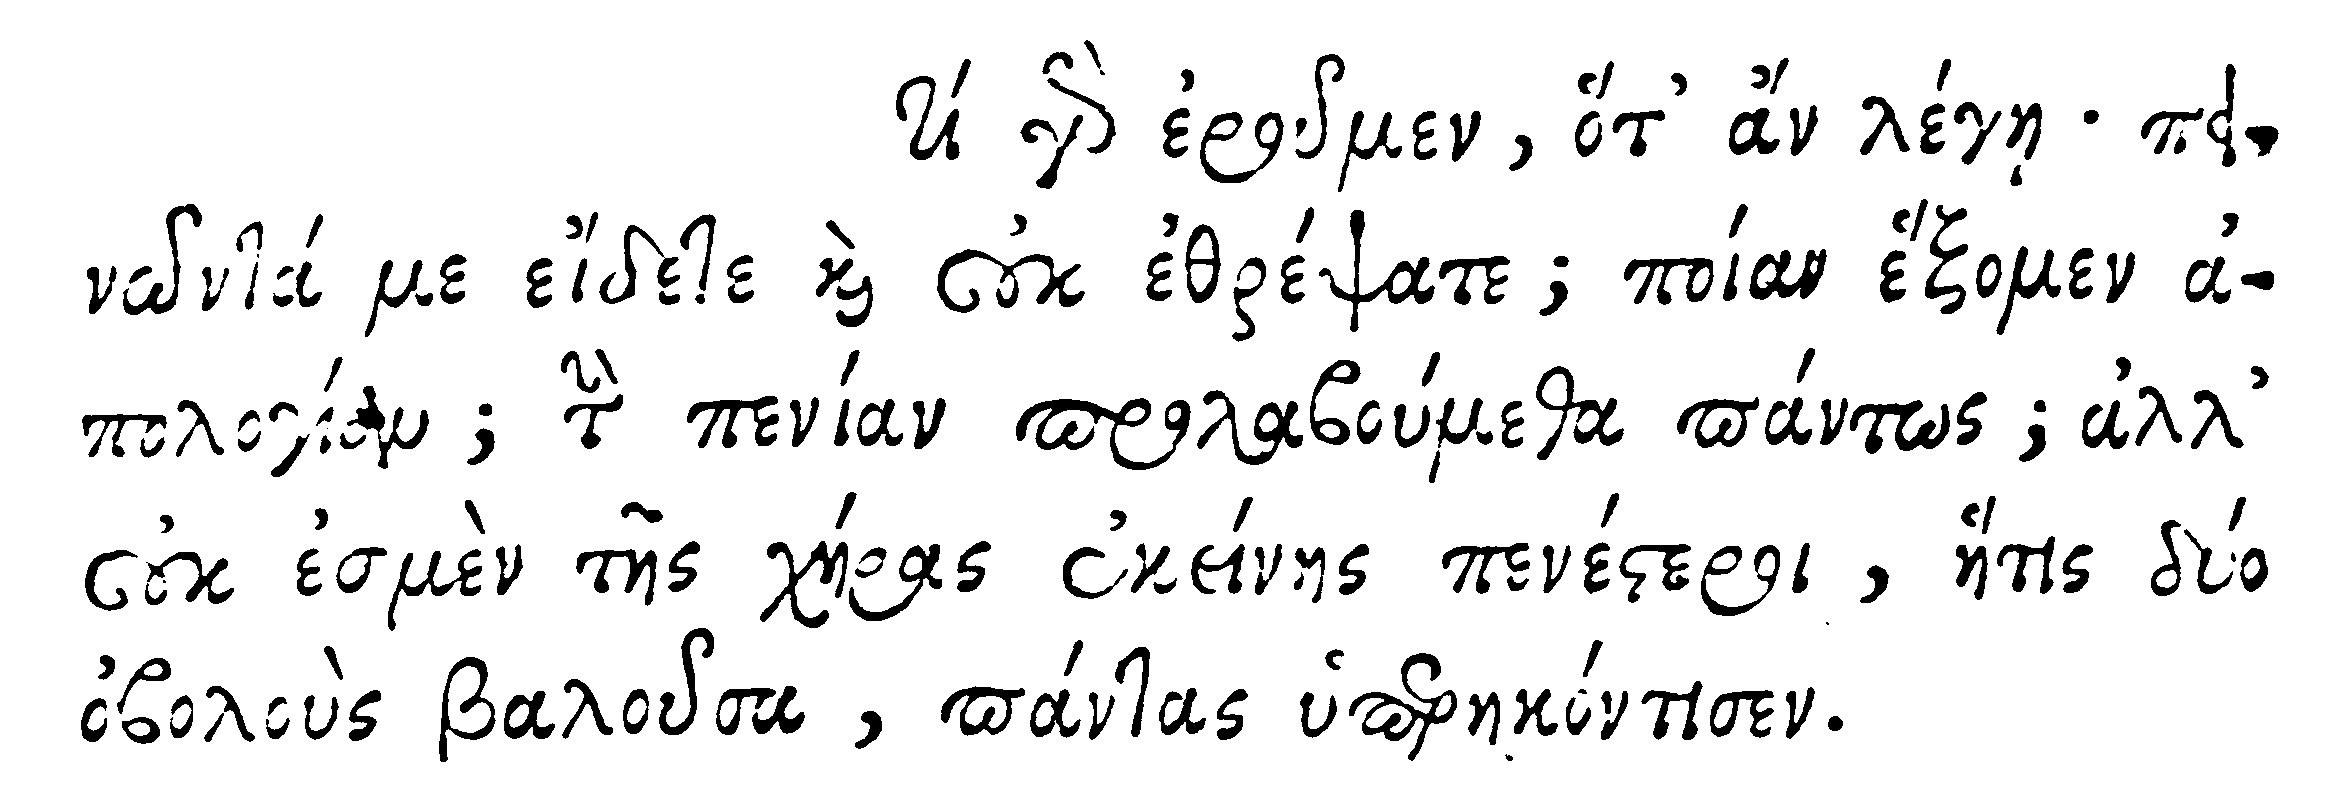 Τί γὰρ ἐροῦμεν, ὅτ' ἂν λέγῃ· πει-
νῶντά με εἴδετε καὶ οὐκ ἐθρέψατε; ποίαν ἕξομεν ἀ-
πολογίαν; τὴν πενίαν προβαλούμεθα πάντως; ἀλλ'
οὐκ ἐσμὲν τῆς χήρας ἐκείνης πενέστεροι, ἥτις δύο
ὀβολοὺς βαλοῦσα, πάντας ὑπερηκόντισεν.